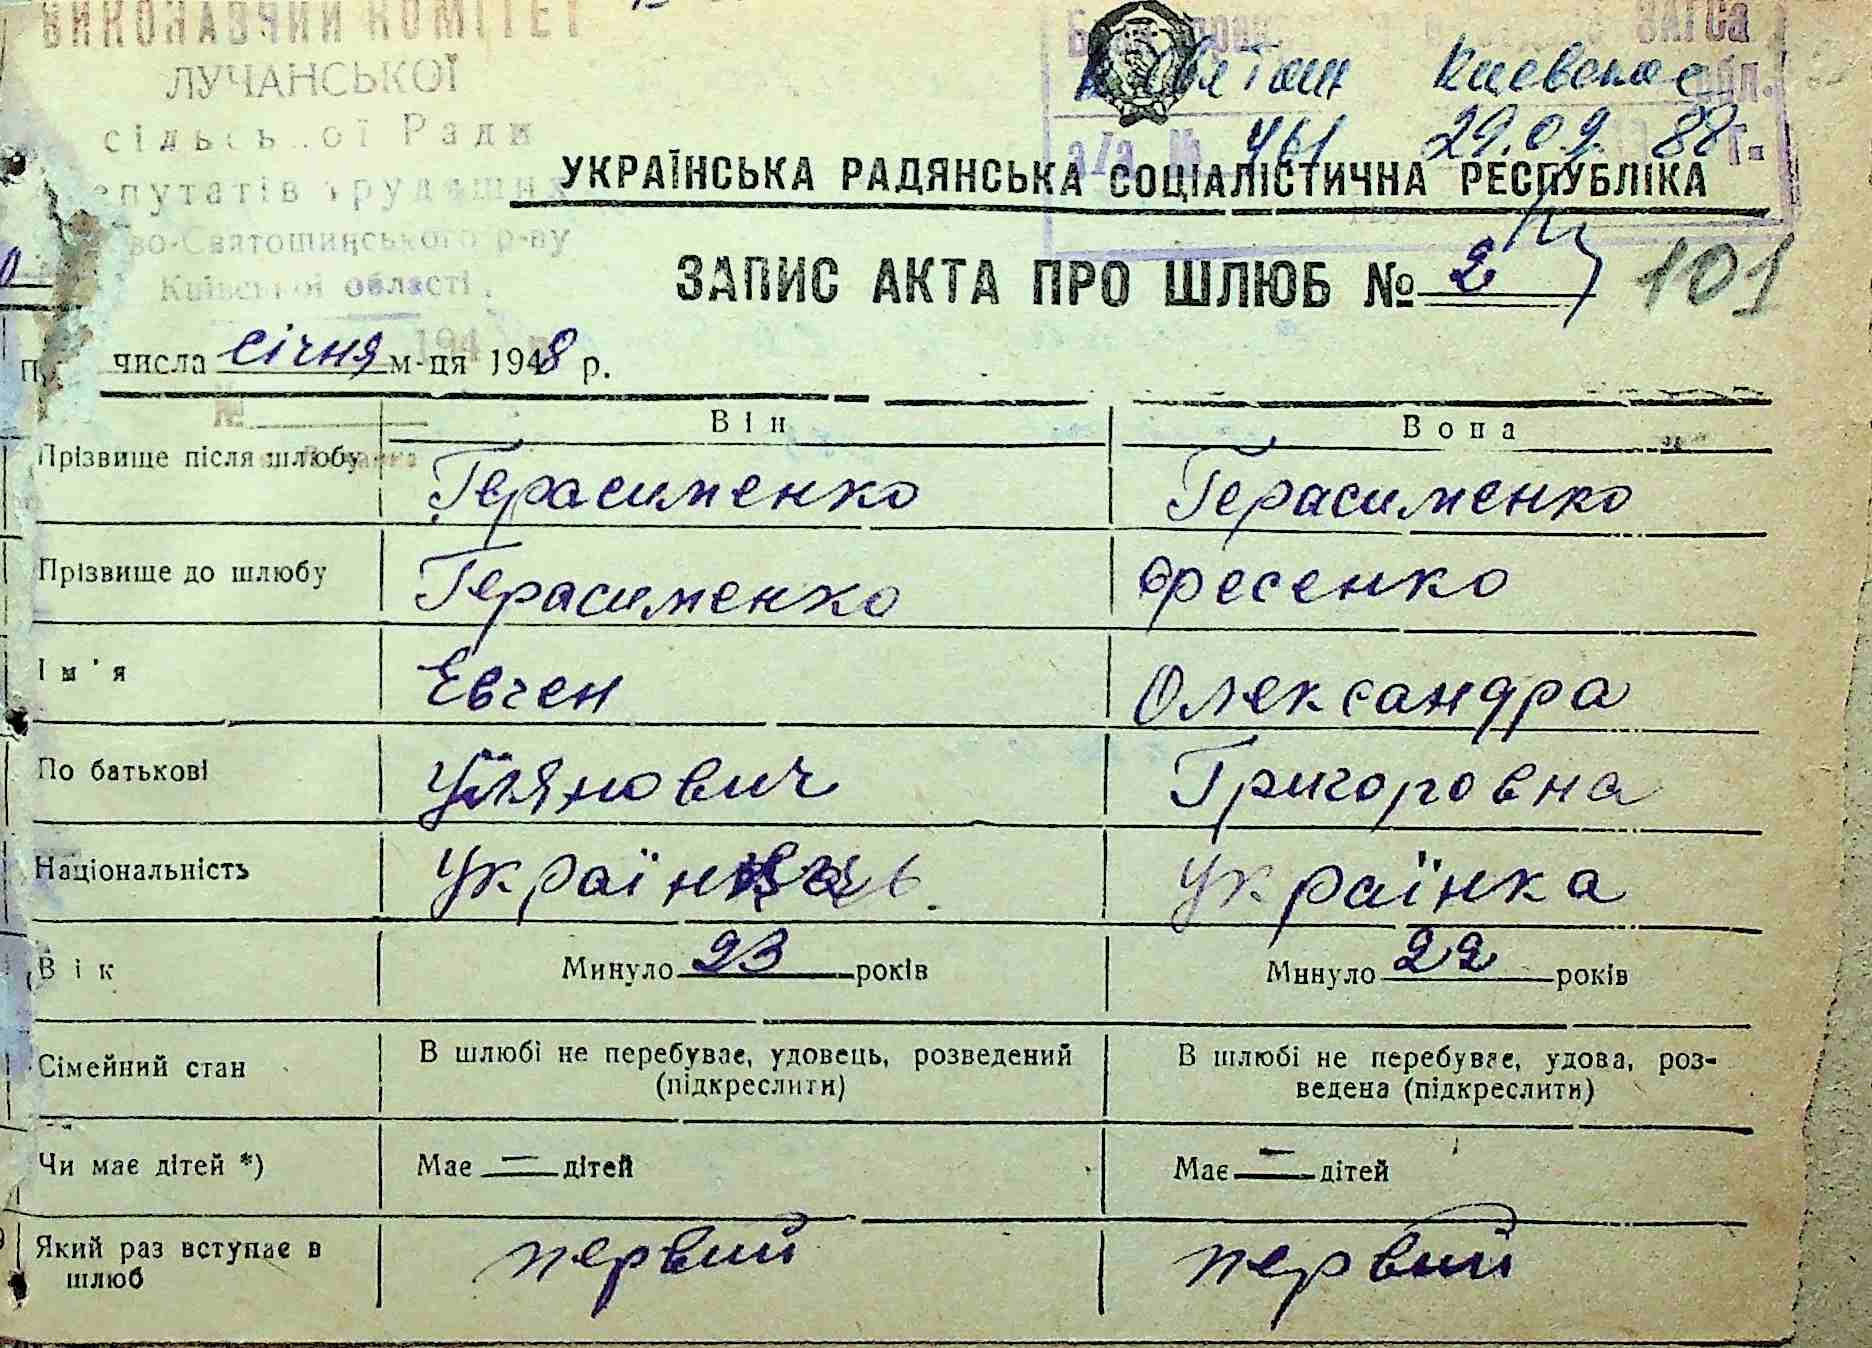 ВИКОНАВЧИЙ КОМІТЕТ
ЛУЧАНСЬКОЇ
сільсь..ої Ради
епутатів трудящих
во-Святошинського р-ну
Київської області
ЗАГСа
Киевское обл.
а/з № 461 29.09. 88 г.
УКРАЇНСЬКА РАДЯНСЬКА СОЦІАЛІСТИЧНА РЕСПУБЛІКА
ЗАПИС АКТА ПРО ШЛЮБ № 2
101
числа січня м-ця 1948 р.
№
Він Вона
Прізвище після шлюбу Герасименко Герасименко
Прізвище до шлюбу Герасименко Фесенко
Ім'я Евген Олександра
По батькові Улянович Григоровна
Національність Українець Українка
Вік Минуло 23 років Минуло 22 років
Сімейний стан В шлюбі не перебуває, удовець, розведений В шлюбі не перебуває, удова, роз-
(підкреслити) ведена (підкреслити)
Чи має дітей *) Має — дітей Має — дітей
Який раз вступає в первий первий
шлюб